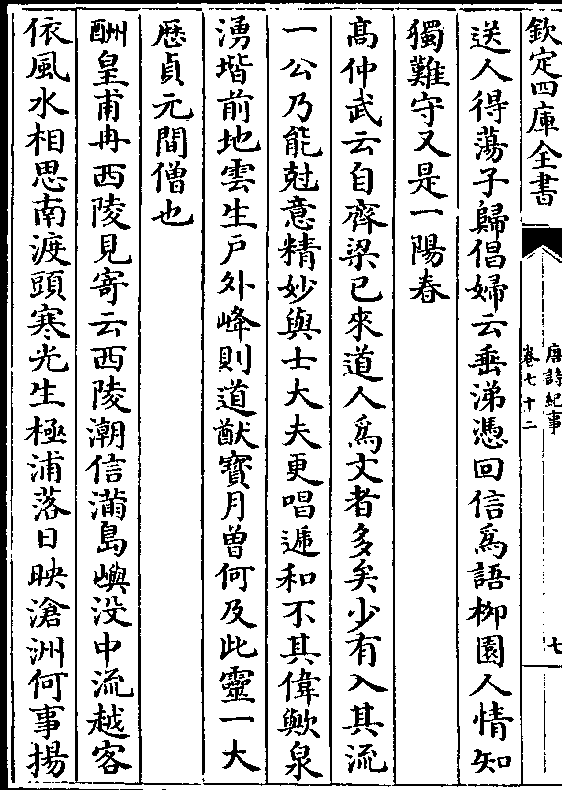 欽定四庫全書
唐詩紀事
卷七十二
七
送人得蕩子歸倡婦云垂涕憑回信爲語栁園人情知
獨難守又是一陽春
髙仲武云自齊梁已來道人爲文者多矣少有入其流
一公乃能尅意精妙與士大夫更唱遞和不其偉歟泉
湧堦前地雲生戶外峰則道猷寳月曽何及此靈一大
厯貞元間僧也
酬皇甫冉西陵見寄云西陵潮信滿島嶼没中流越客
依風水相思南渡頭寒光生極浦落日映滄洲何事揚